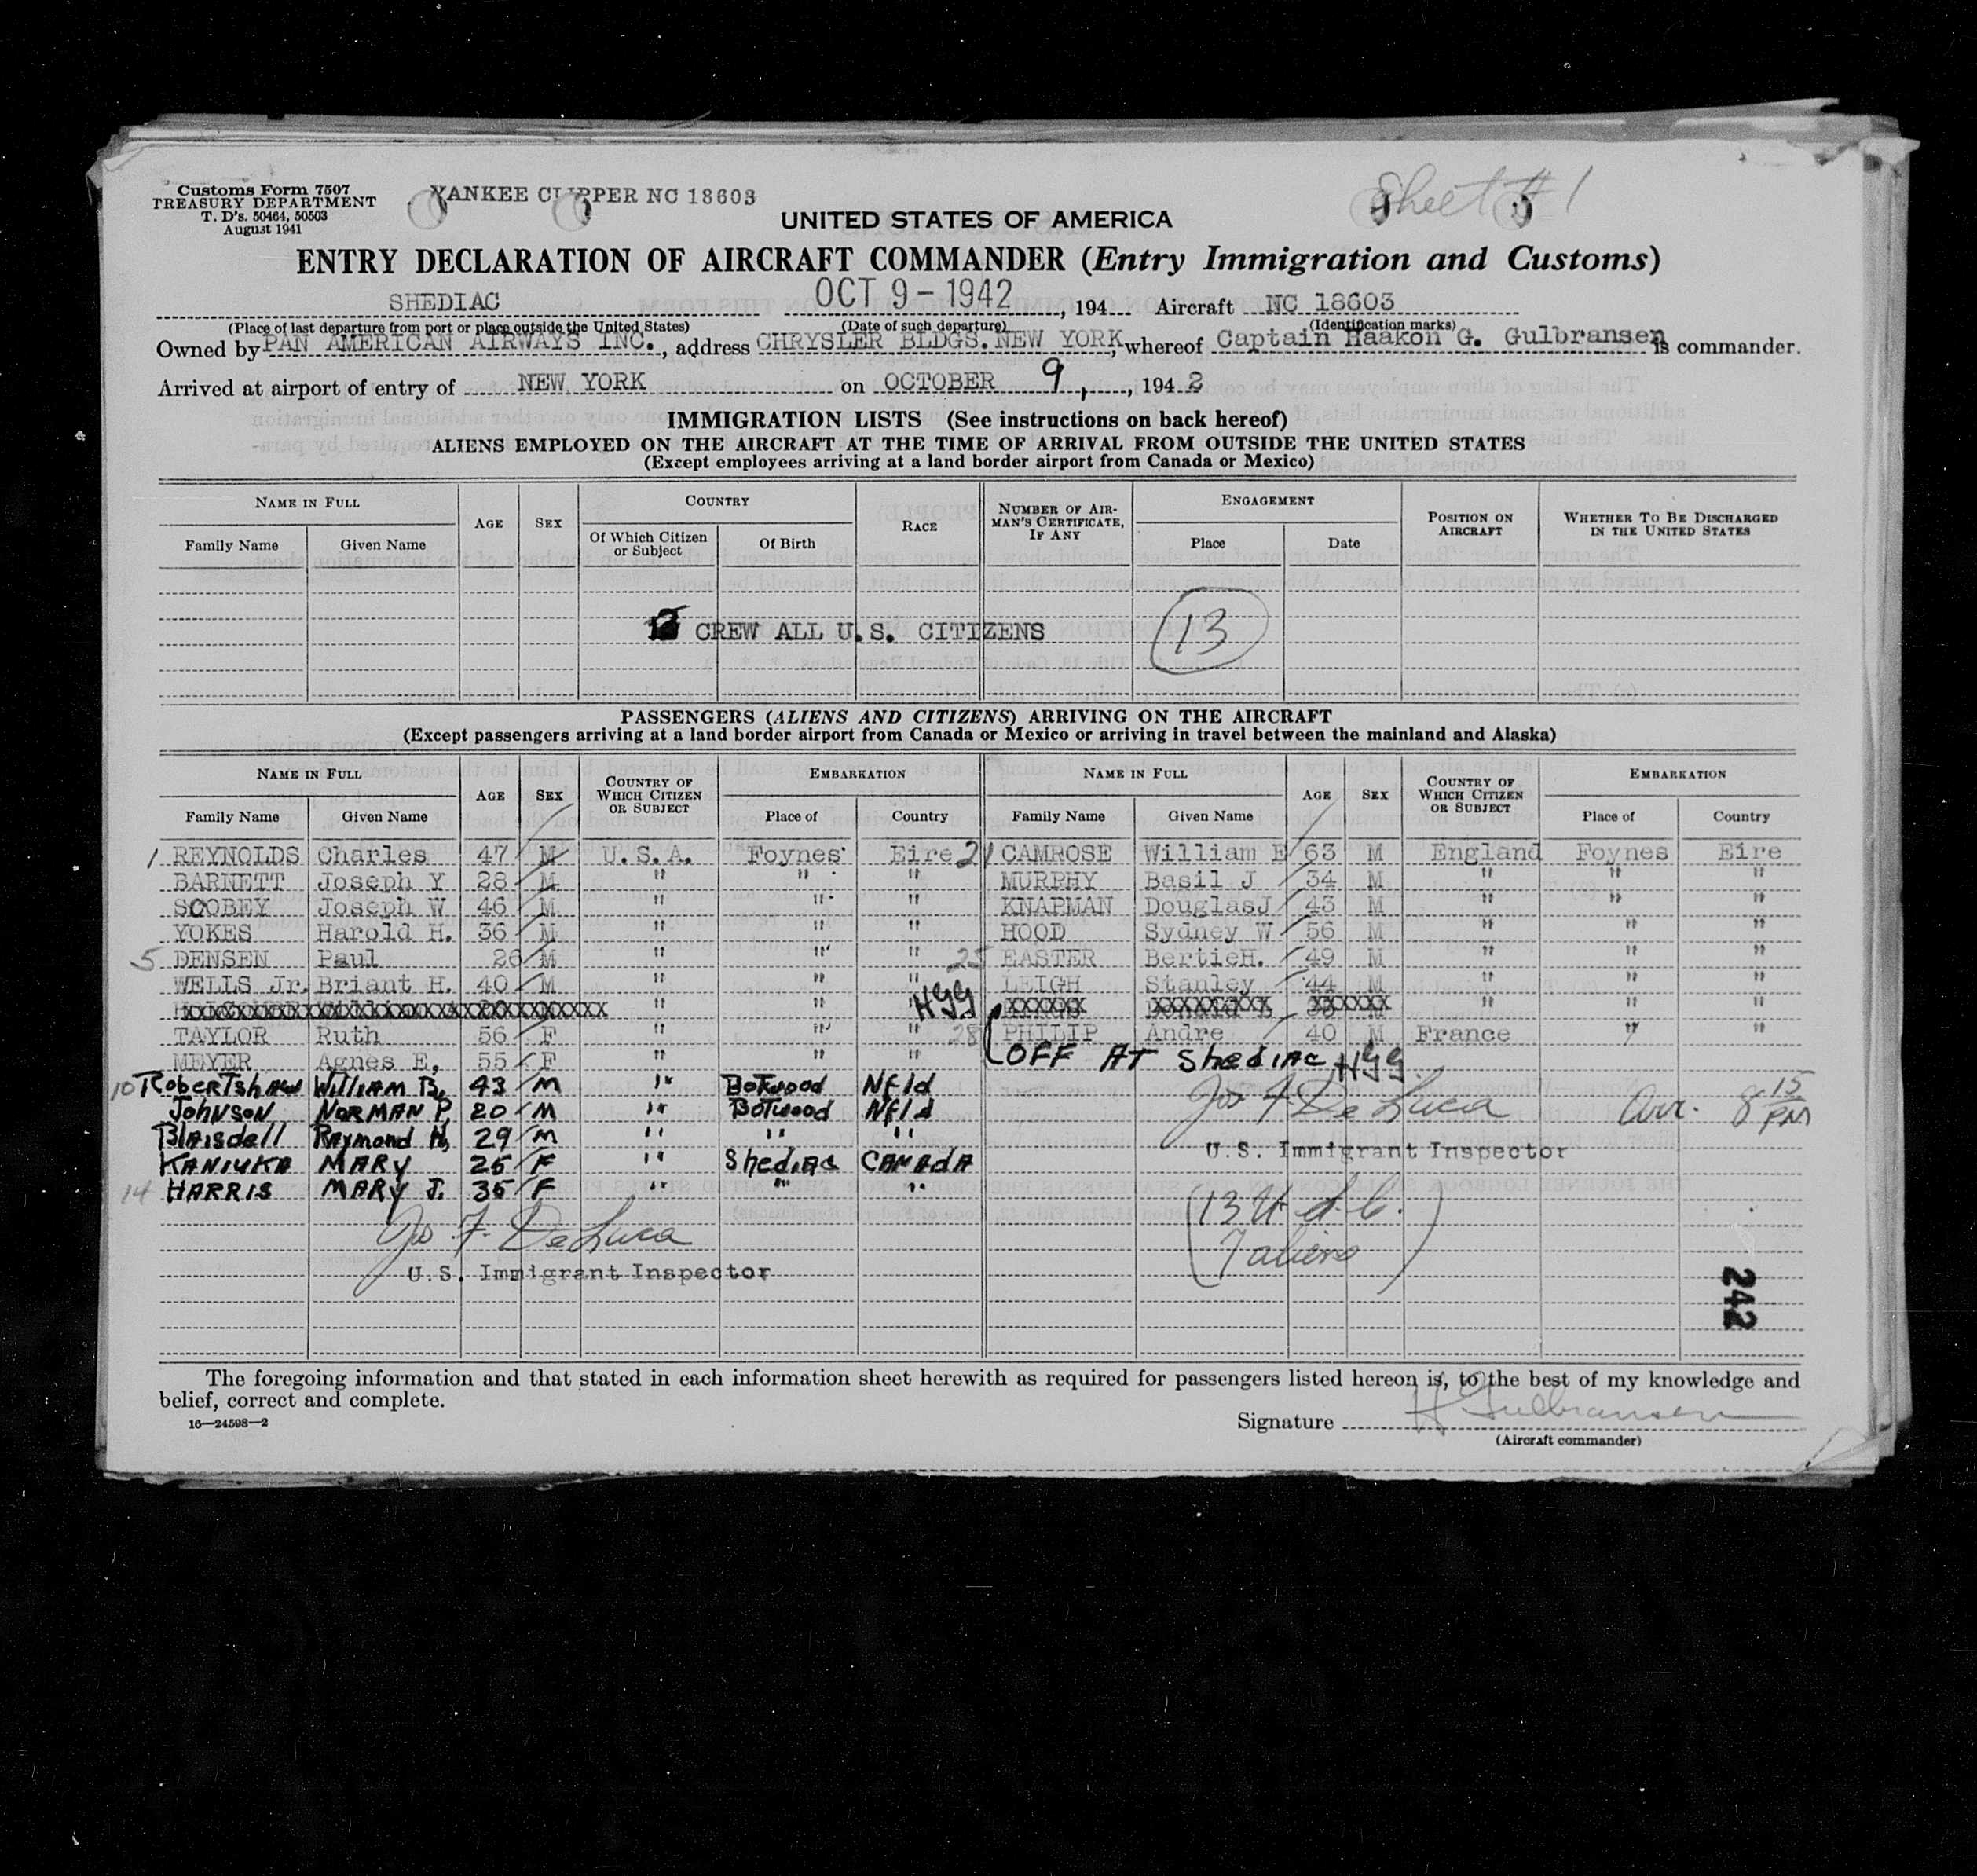 Customs Form 7507
TREASURY DEPARTMENT
T. D's. 50464, 50503
August 1941
YANKEE CLIPPER NC 18603
Sheet # 1
UNITED STATES OF AMERICA
ENTRY DECLARATION OF AIRCRAFT COMMANDER (Entry Immigration and Customs)
SHEDIAC OCT 9 - 1942, 194 Aircraft NC 18603
(Place of last departure from port or place outside the United States) (Date of such departure) (Identification marks)
Owned by PAN AMERICAN AIRWAYS INC., address CHRYSLER BLDGS. NEW YORK, whereof Captain Haakon G. Gulbransen is commander.
Arrived at airport of entry of NEW YORK on OCTOBER 9, , 194 2
IMMIGRATION LISTS (See instructions on back hereof)
ALIENS EMPLOYED ON THE AIRCRAFT AT THE TIME OF ARRIVAL FROM OUTSIDE THE UNITED STATES
(Except employees arriving at a land border airport from Canada or Mexico)
NAME IN FULL AGE SEX COUNTRY RACE NUMBER OF AIRMAN'S CERTIFICATE, IF ANY ENGAGEMENT POSITION ON AIRCRAFT WHETHER TO BE DISCHARGED IN THE UNITED STATES
Family Name Given Name Of Which Citizen or Subject Of Birth Place Date
CREW ALL U.S. CITIZENS 13
PASSENGERS (ALIENS AND CITIZENS) ARRIVING ON THE AIRCRAFT
(Except passengers arriving at a land border airport from Canada or Mexico or arriving in travel between the mainland and Alaska)
NAME IN FULL AGE SEX COUNTRY OF WHICH CITIZEN OR SUBJECT EMBARKATION NAME IN FULL AGE SEX COUNTRY OF WHICH CITIZEN OR SUBJECT EMBARKATION
Family Name Given Name Place of Country Family Name Given Name Place of Country
1 REYNOLDS Charles 47 M U.S.A. Foynes Eire 21 CAMROSE William E 63 M England Foynes Eire
BARNETT Joseph Y 28 M " " " MURPHY Basil J 34 M " " "
SCOBEY Joseph W 46 M " " " KNAPMAN Douglas J 43 M " " "
YOKES Harold H. 36 M " " " HOOD Sydney W 56 M " " "
5 DENSEN Paul 26 M " " " 25 EASTER Bertie H. 49 M " " "
WELLS Jr. Briant H. 40 M " " " LEIGH Stanley 44 M " " "
" " " HGG " " "
TAYLOR Ruth 56 F " " " 28 PHILIP Andre 40 M France " "
MEYER Agnes E, 55 F " " " OFF AT Shediac HGG.
10 Robertshaw William B. 43 M " Botwood Nfld
Johnson Norman P. 20 M " Botwood Nfld Jos F. De Luca Arr. 8 15 PM
Blaisdell Raymond H, 29 M " " " U.S. Immigrant Inspector
KANIUKA MARY 25 F " Shediac CANADA
14 HARRIS MARY J. 35 F " " "
(13 U.S.C.
Jos F. De Luca 7 aliens)
U.S. Immigrant Inspector
242
The foregoing information and that stated in each information sheet herewith as required for passengers listed hereon is, to the best of my knowledge and
belief, correct and complete.
16—24598—2
Signature H Gulbransen
(Aircraft commander)